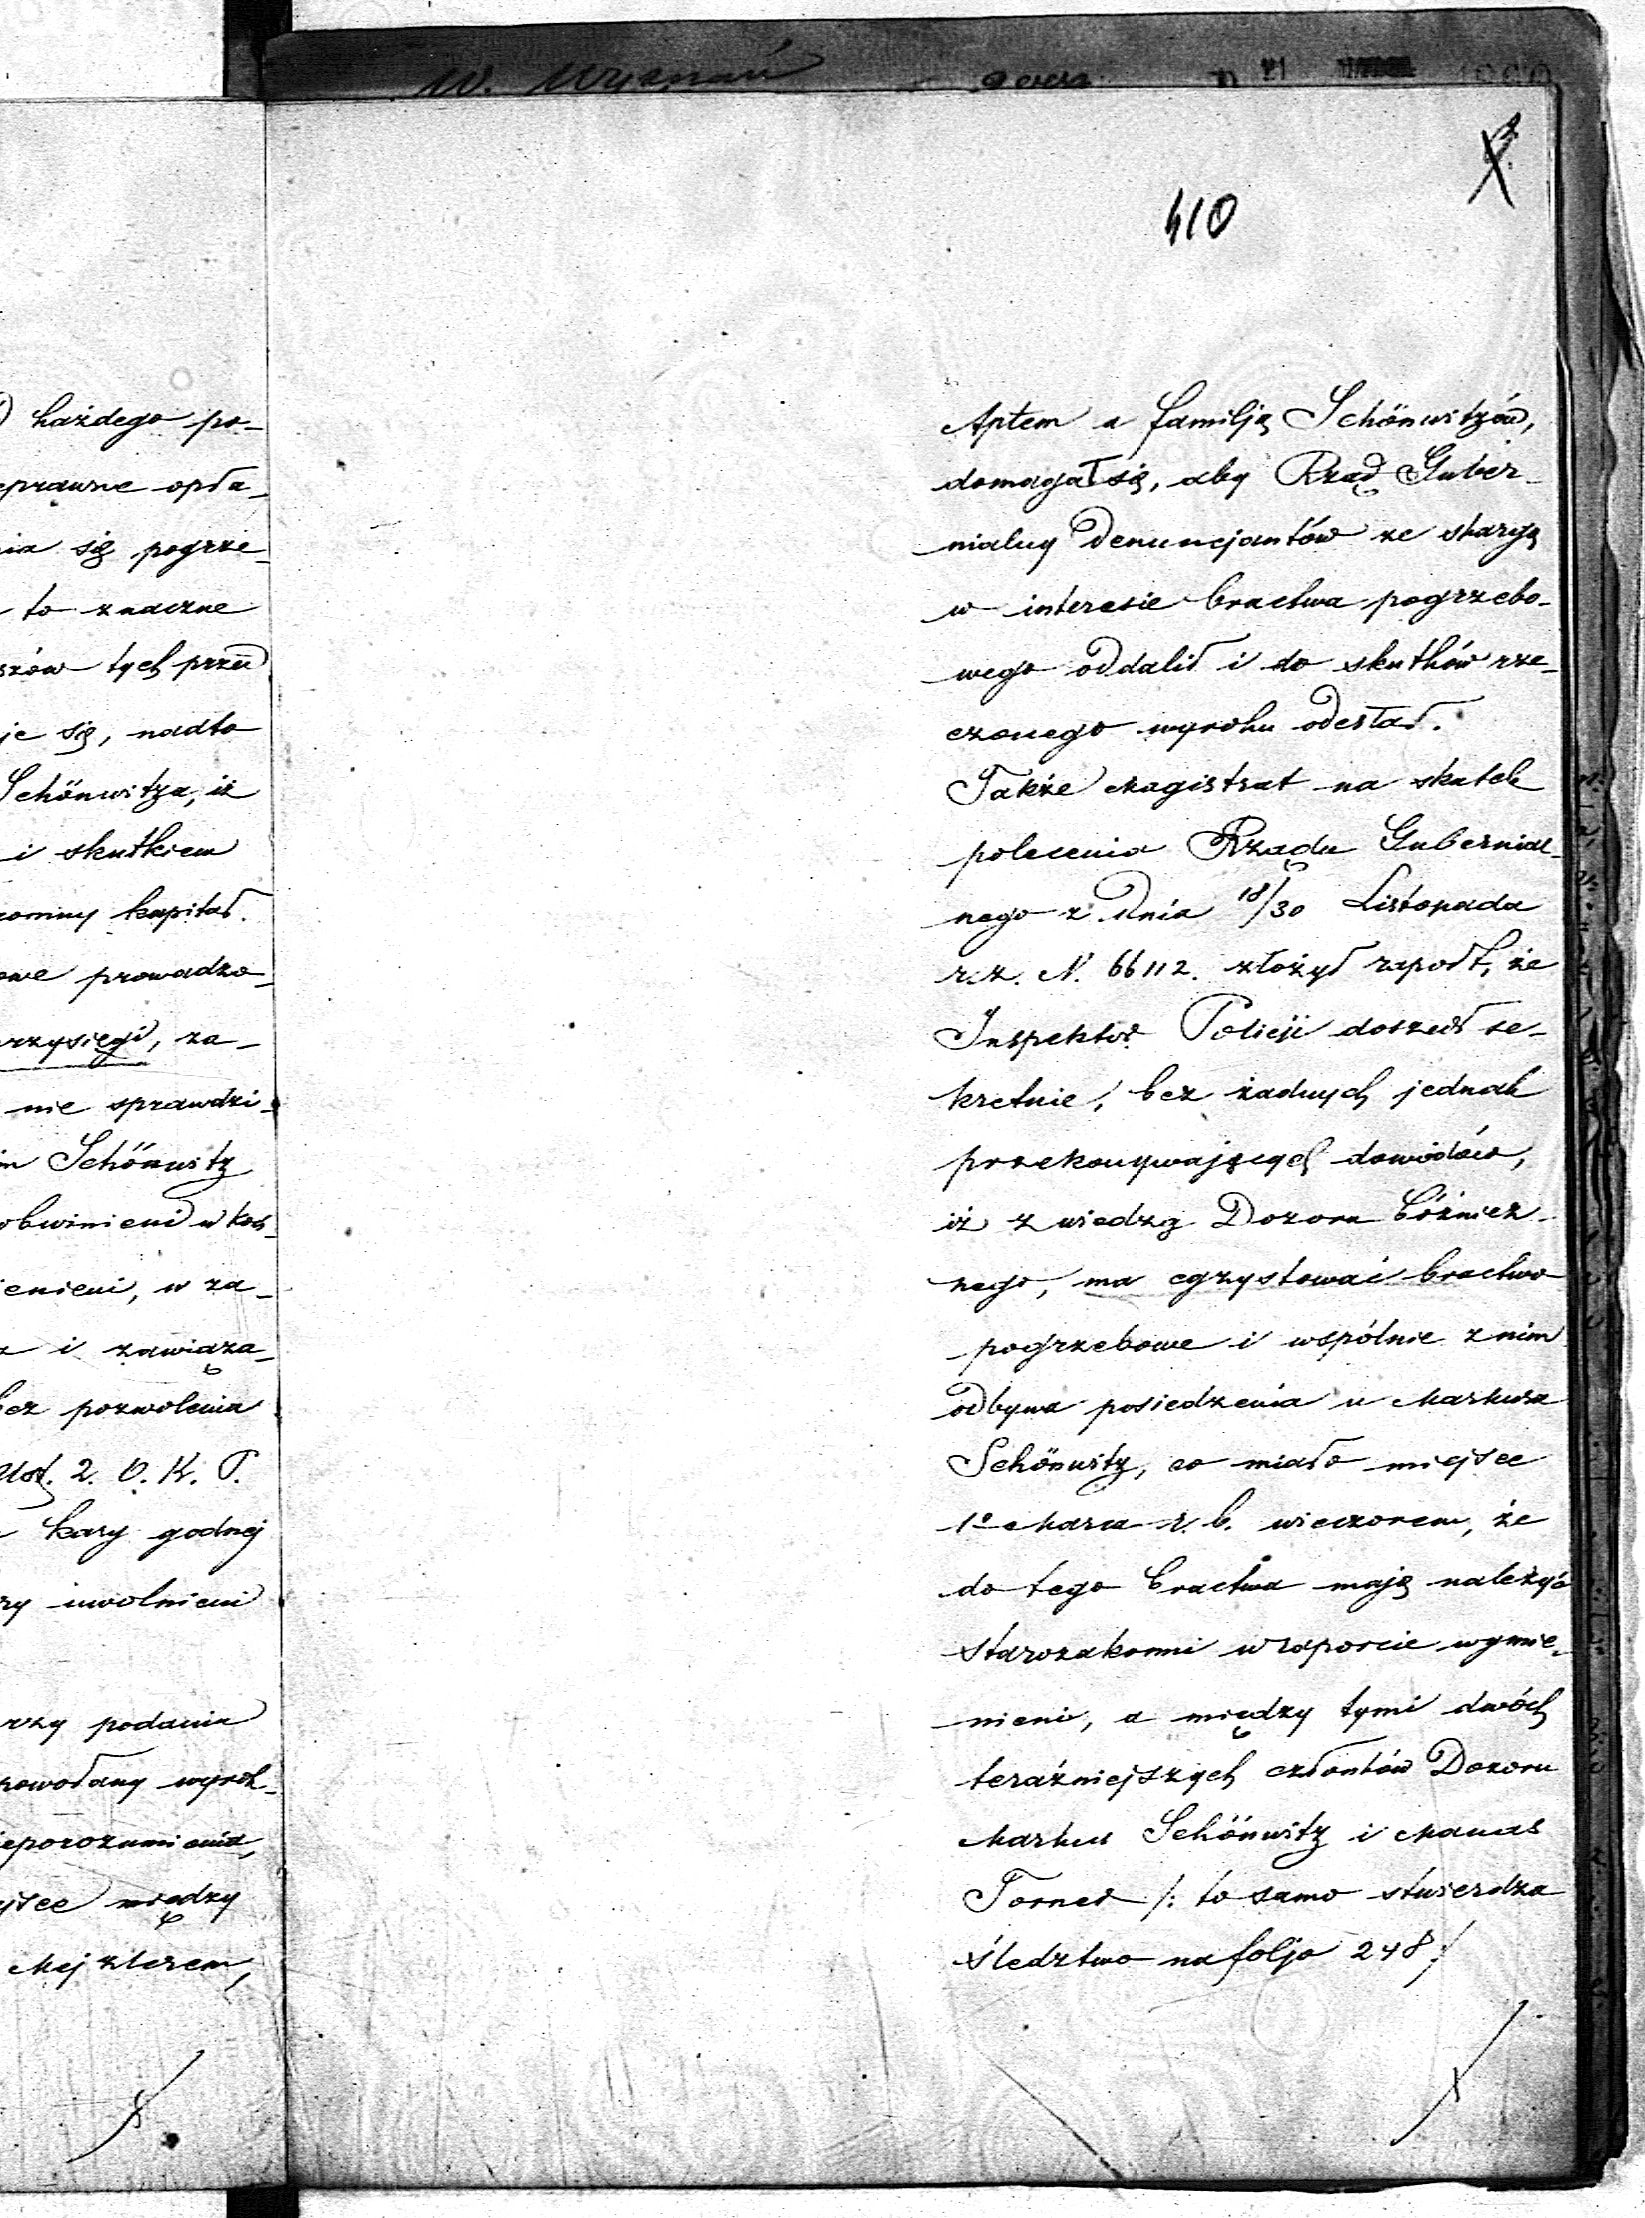 410
każdego po-
prawne opła-
się pogrze-
to znaczne
tych przed
je się, nadto
Schönwitza, iż
i skutkiem
kapitał.
prowadzo-
rzysięgi, za-
nie sprawdzi-
Schönwitz
obwinieni w kos-
w za-
i zawiąza-
bez pozwolenia
Ust. 2. O. K. P.
kary godnej
uwolnieni
podania
wyrok-
eporozumienia,
między
Mejzterem,
Aptem a familją Schönwitzów,
domagał się, aby Rząd Guber-
nialny denuncjantów ze skargą
w interesie bractwa pogrzebo-
wego oddalił i do skutków rze-
czonego wyroku odesłał.
Także Magistrat na skutek
polecenia Rządu Gubernial-
nego z dnia 18/30 Listopada
r.z. N. 66112. złożył raport, że
Inspektor Policji doszedł se-
kretnie, bez żadnych jednak
przekonywających dowodów,
iż z wiedzą Dozoru bóżnicz-
nego, ma egzystować bractwo
pogrzebowe i wspólnie z nim
odbywa posiedzenia u Markusa
Schönwitz, co miało miejsce
1º Marca r. b. wieczorem, że
do tego bractwa mają należyć
starozakonni w raporcie wymie-
nieni, a między tymi dwóch
teraźniejszych członków Dozoru
Markus Schönwitz i Manas
Torner /: to samo stwierdza
śledztwo na foljo 248 :/